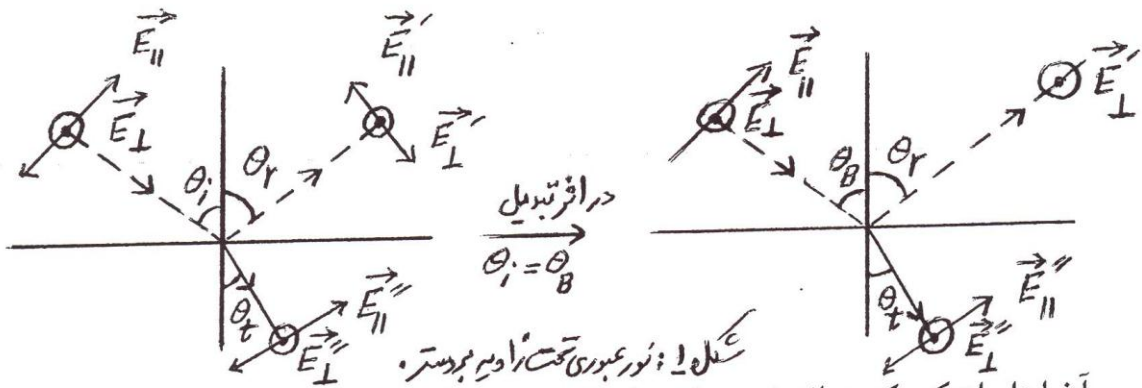 E∥ E⊥ θi θr E∥′ E⊥′ θt E∥″ E⊥″
در اثر تبدیل
θi = θB
E∥ E⊥ θB θr E⊥′ θt E∥″ E⊥″
شکل 1: نور عبوری تحت زاویه بروستر.